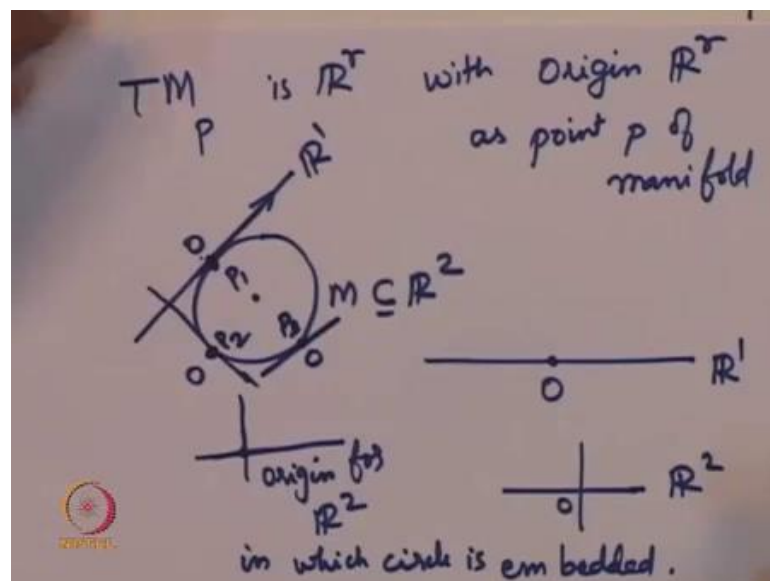 TM_P is ℝ^r with origin ℝ^r
as point p of
manifold
ℝ^1
O
P1
M ⊆ ℝ^2
P2
P3
O
O
O
ℝ^1
origin for
ℝ^2
O
ℝ^2
in which circle is embedded.